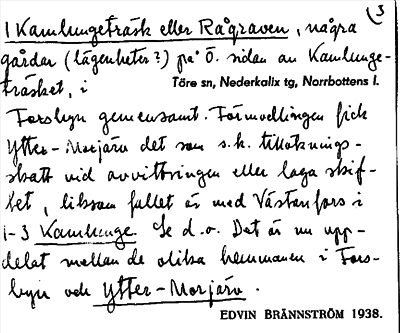 3
1 Kamlungeträsk eller Rågraven, några
gårdar (lägenheter?) på ö. sidan av Kamlunge-
träsket, i
Töre sn, Nederkalix tg, Norrbottens l.
Forsbyn gemensamt. Förmodligen fick
Ytter-Morjärv det som s.k. tillöknings-
skatt vid avvittringen eller laga skif-
tet, liksom fallet är med Västanfors i
1-3 Kamlunge. Se d.o. Det är nu upp-
delat mellan de olika hemmanen i Fors-
byn och Ytter-Morjärv.
EDVIN BRÄNNSTRÖM 1938.